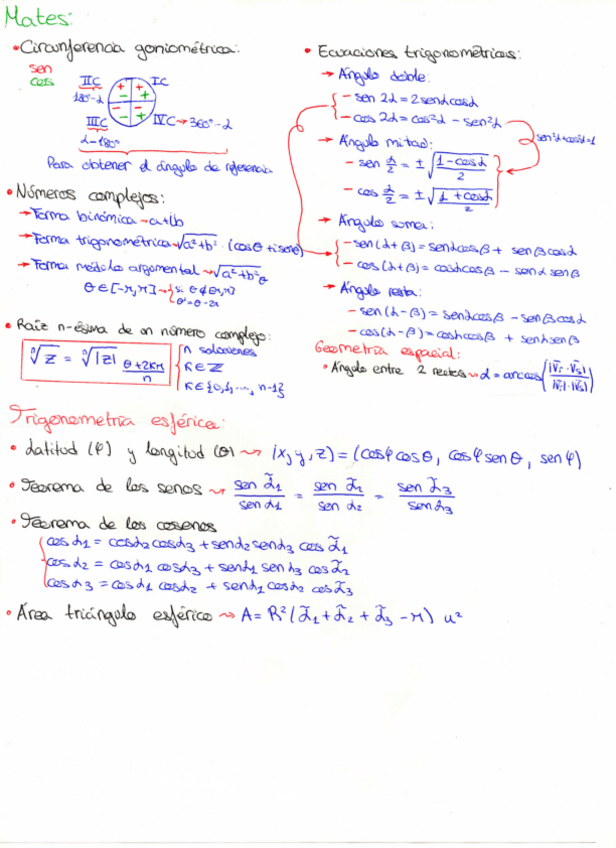 Mates:
• Circunferencia goniométrica:
sen
cos
IIC
IC
180°-α
IIIC
IVC → 360°-α
α-180°
Para obtener el ángulo de referencia
• Números complejos:
→ Forma binómica → a+ib
→ Forma trigonométrica → √(a²+b²) · (cosθ + i senθ)
→ Forma módulo argumental → √(a²+b²)_θ
θ∈[-π,π] → { si θ∉[-π,π]
θ'=θ-2π
• Raíz n-ésima de un número complejo:
ⁿ√z = ⁿ√|z| _(θ+2Kπ)/n
n soluciones
K∈Z
K∈{0,1,..., n-1}
• Ecuaciones trigonométricas:
→ Ángulo doble:
- sen 2α = 2senαcosα
- cos 2α = cos²α - sen²α
sen²α+cos²α=1
→ Ángulo mitad:
- sen α/2 = ±√((1-cosα)/2)
- cos α/2 = ±√((1+cosα)/2)
→ Ángulo suma:
- sen(α+β) = senαcosβ + senβcosα
- cos(α+β) = cosαcosβ - senα senβ
→ Ángulo resta:
- sen(α-β) = senαcosβ - senβcosα
- cos(α-β) = cosαcosβ + senαsenβ
Geometría espacial:
• Ángulo entre 2 rectas → α = arccos(|Vr·Vs| / |Vr|·|Vs|)
Trigonometría esférica:
• Latitud (φ) y longitud (θ) → (x,y,z) = (cosφcosθ, cosφsenθ, senφ)
• Teorema de los senos → sen α̃1/sen α1 = sen α̃2/sen α2 = sen α̃3/sen α3
• Teorema de los cosenos
cos α1 = cosα2cosα3 + senα2senα3 cos α̃1
cos α2 = cosα1 cosα3 + senα1 senα3 cos α̃2
cos α3 = cosα1 cosα2 + senα1 cosα2 cos α̃3
• Área triángulo esférico → A = R²(α̃1+α̃2+α̃3-π) u²